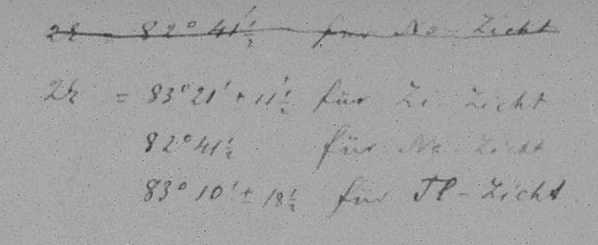 2ξ = 82° 41 1/2' für Na-Licht
2ξ = 83° 21' + 11 1/2' für Li-Licht
82° 41 1/2' für Na-Licht
83° 10' ± 18 1/2' für Tl-Licht